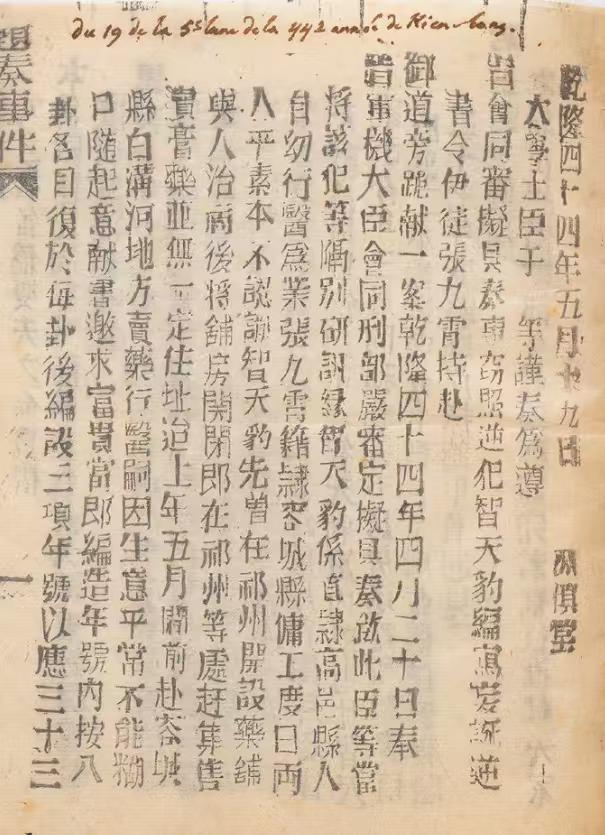 du 19 de la 5e lune de la 44e année de Kien-long.
乾隆四十四年五月十九日 公慎堂
大學士臣于 等謹奏爲遵
旨會同審擬具奏事竊照逆犯智天豹編寫妄誕逆
書令伊徒張九霄持赴
御道旁跪献一案乾隆四十四年四月二十日奉
旨軍機大臣會同刑部嚴審定擬具奏欽此臣等當
將該犯等隔別研訊緣智天豹係直隷高邑縣人
自幼行醫爲業張九霄籍隷容城縣傭工度日両
人平素本不認識智天豹先曾在祁州開設藥舖
與人治病後將舖房關閉即在祁州等處赶集售
賣膏藥並無一定住址迨上年五月間前赴容城
縣白溝河地方賣藥行醫嗣因生意平常不能糊
口随起意献書邀求富貴當即編造年號内按八
卦各目復於每卦後編設三項年號以應三十三
題奏事件 一